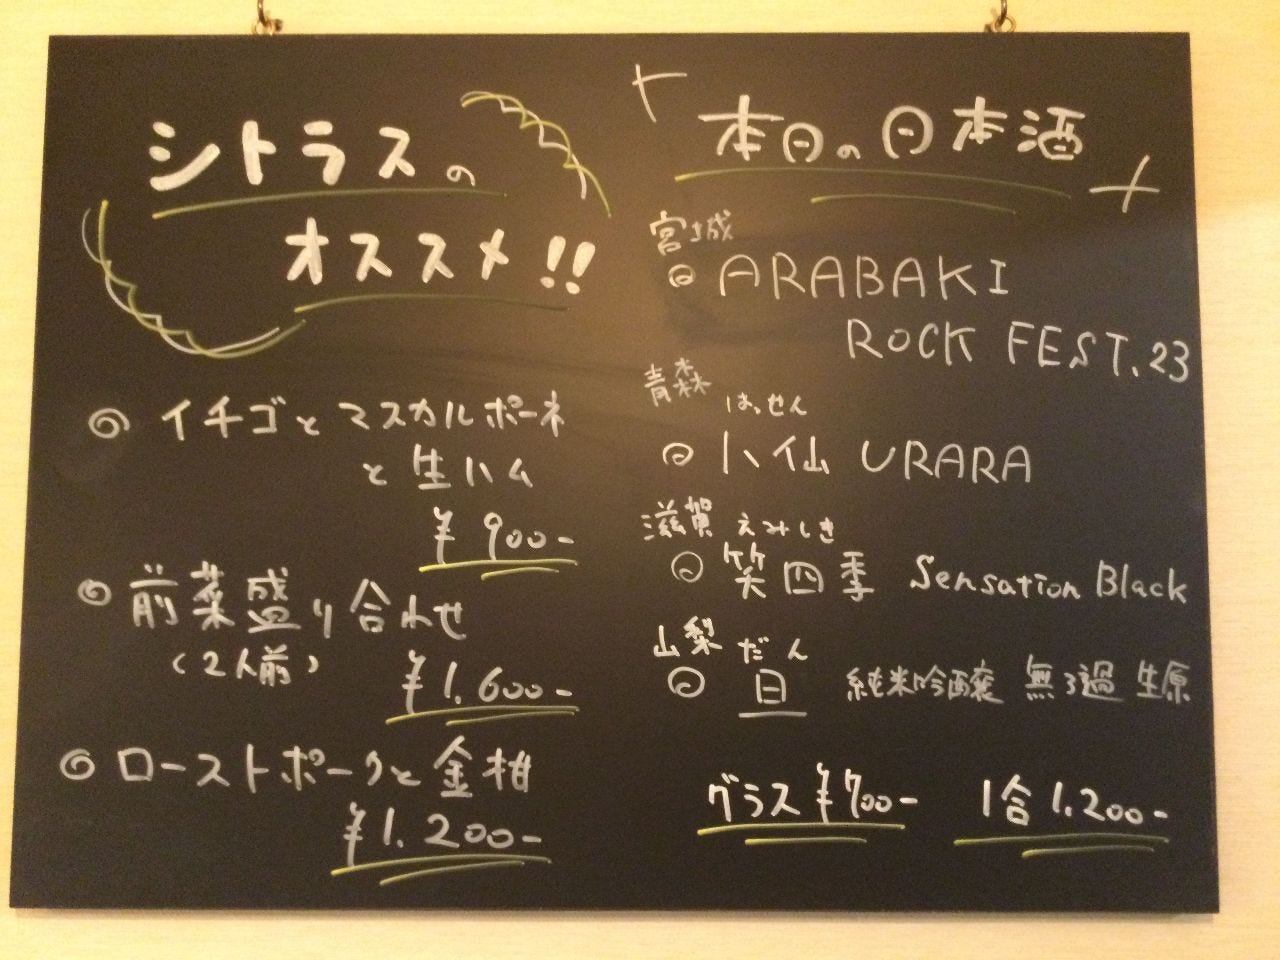 シトラスの
オススメ!!
イチゴとマスカルポーネ
と生ハム
¥900-
前菜盛り合わせ
(2人前)
¥1,600-
ローストポークと金柑
¥1,200-
本日の日本酒
宮城
ARABAKI
ROCK FEST.23
青森
はっせん
八仙 URARA
滋賀 えみしき
笑四季 Sensation Black
山梨 だん
旦 純米吟醸 無ろ過 生原
グラス¥700- 1合1,200-